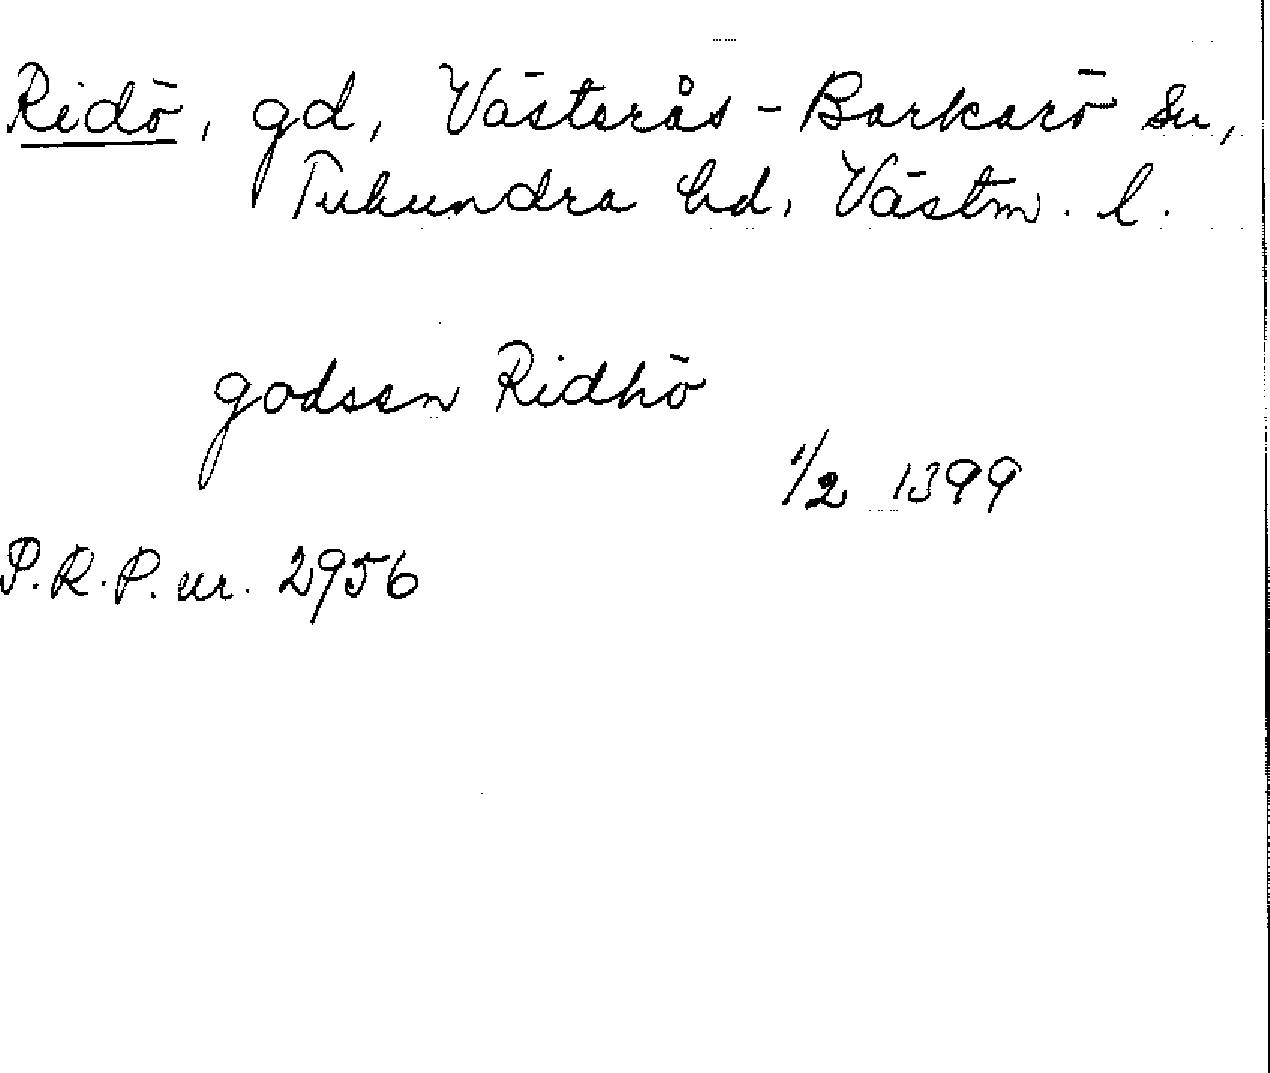 Ridö, gd, Västerås-Barkarö sn,
Tuhundra hd, Västm. l.
godsen Ridhö
1/2 1399
P.R.P. nr. 2956